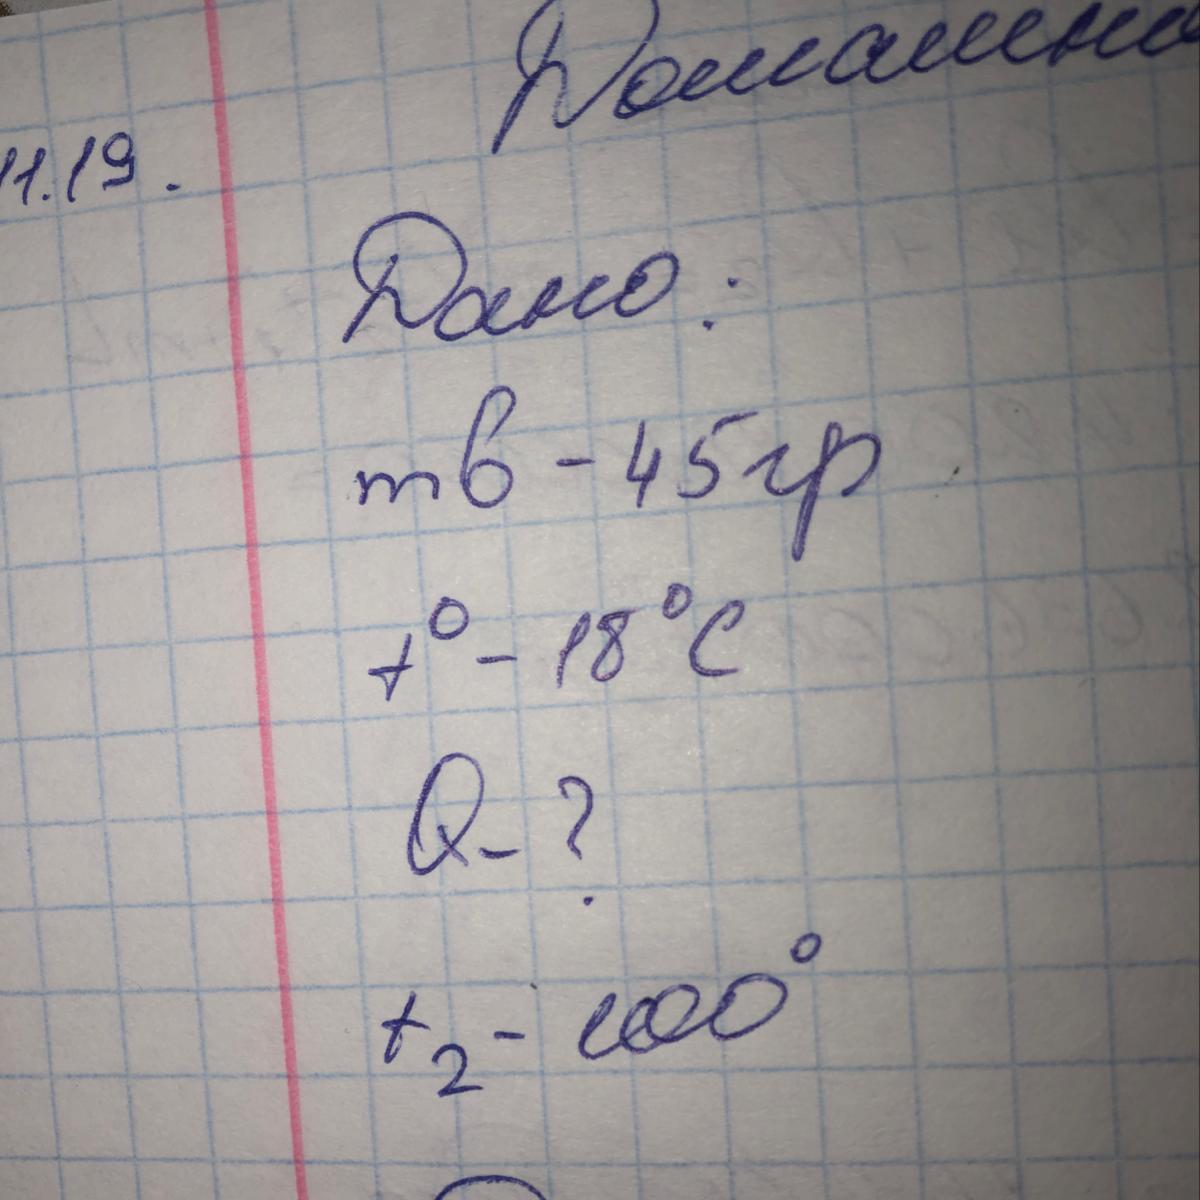 Домашня
11.19.
Дано:
mв - 45гр
t° - 18°С
Q - ?
t₂ - 100°